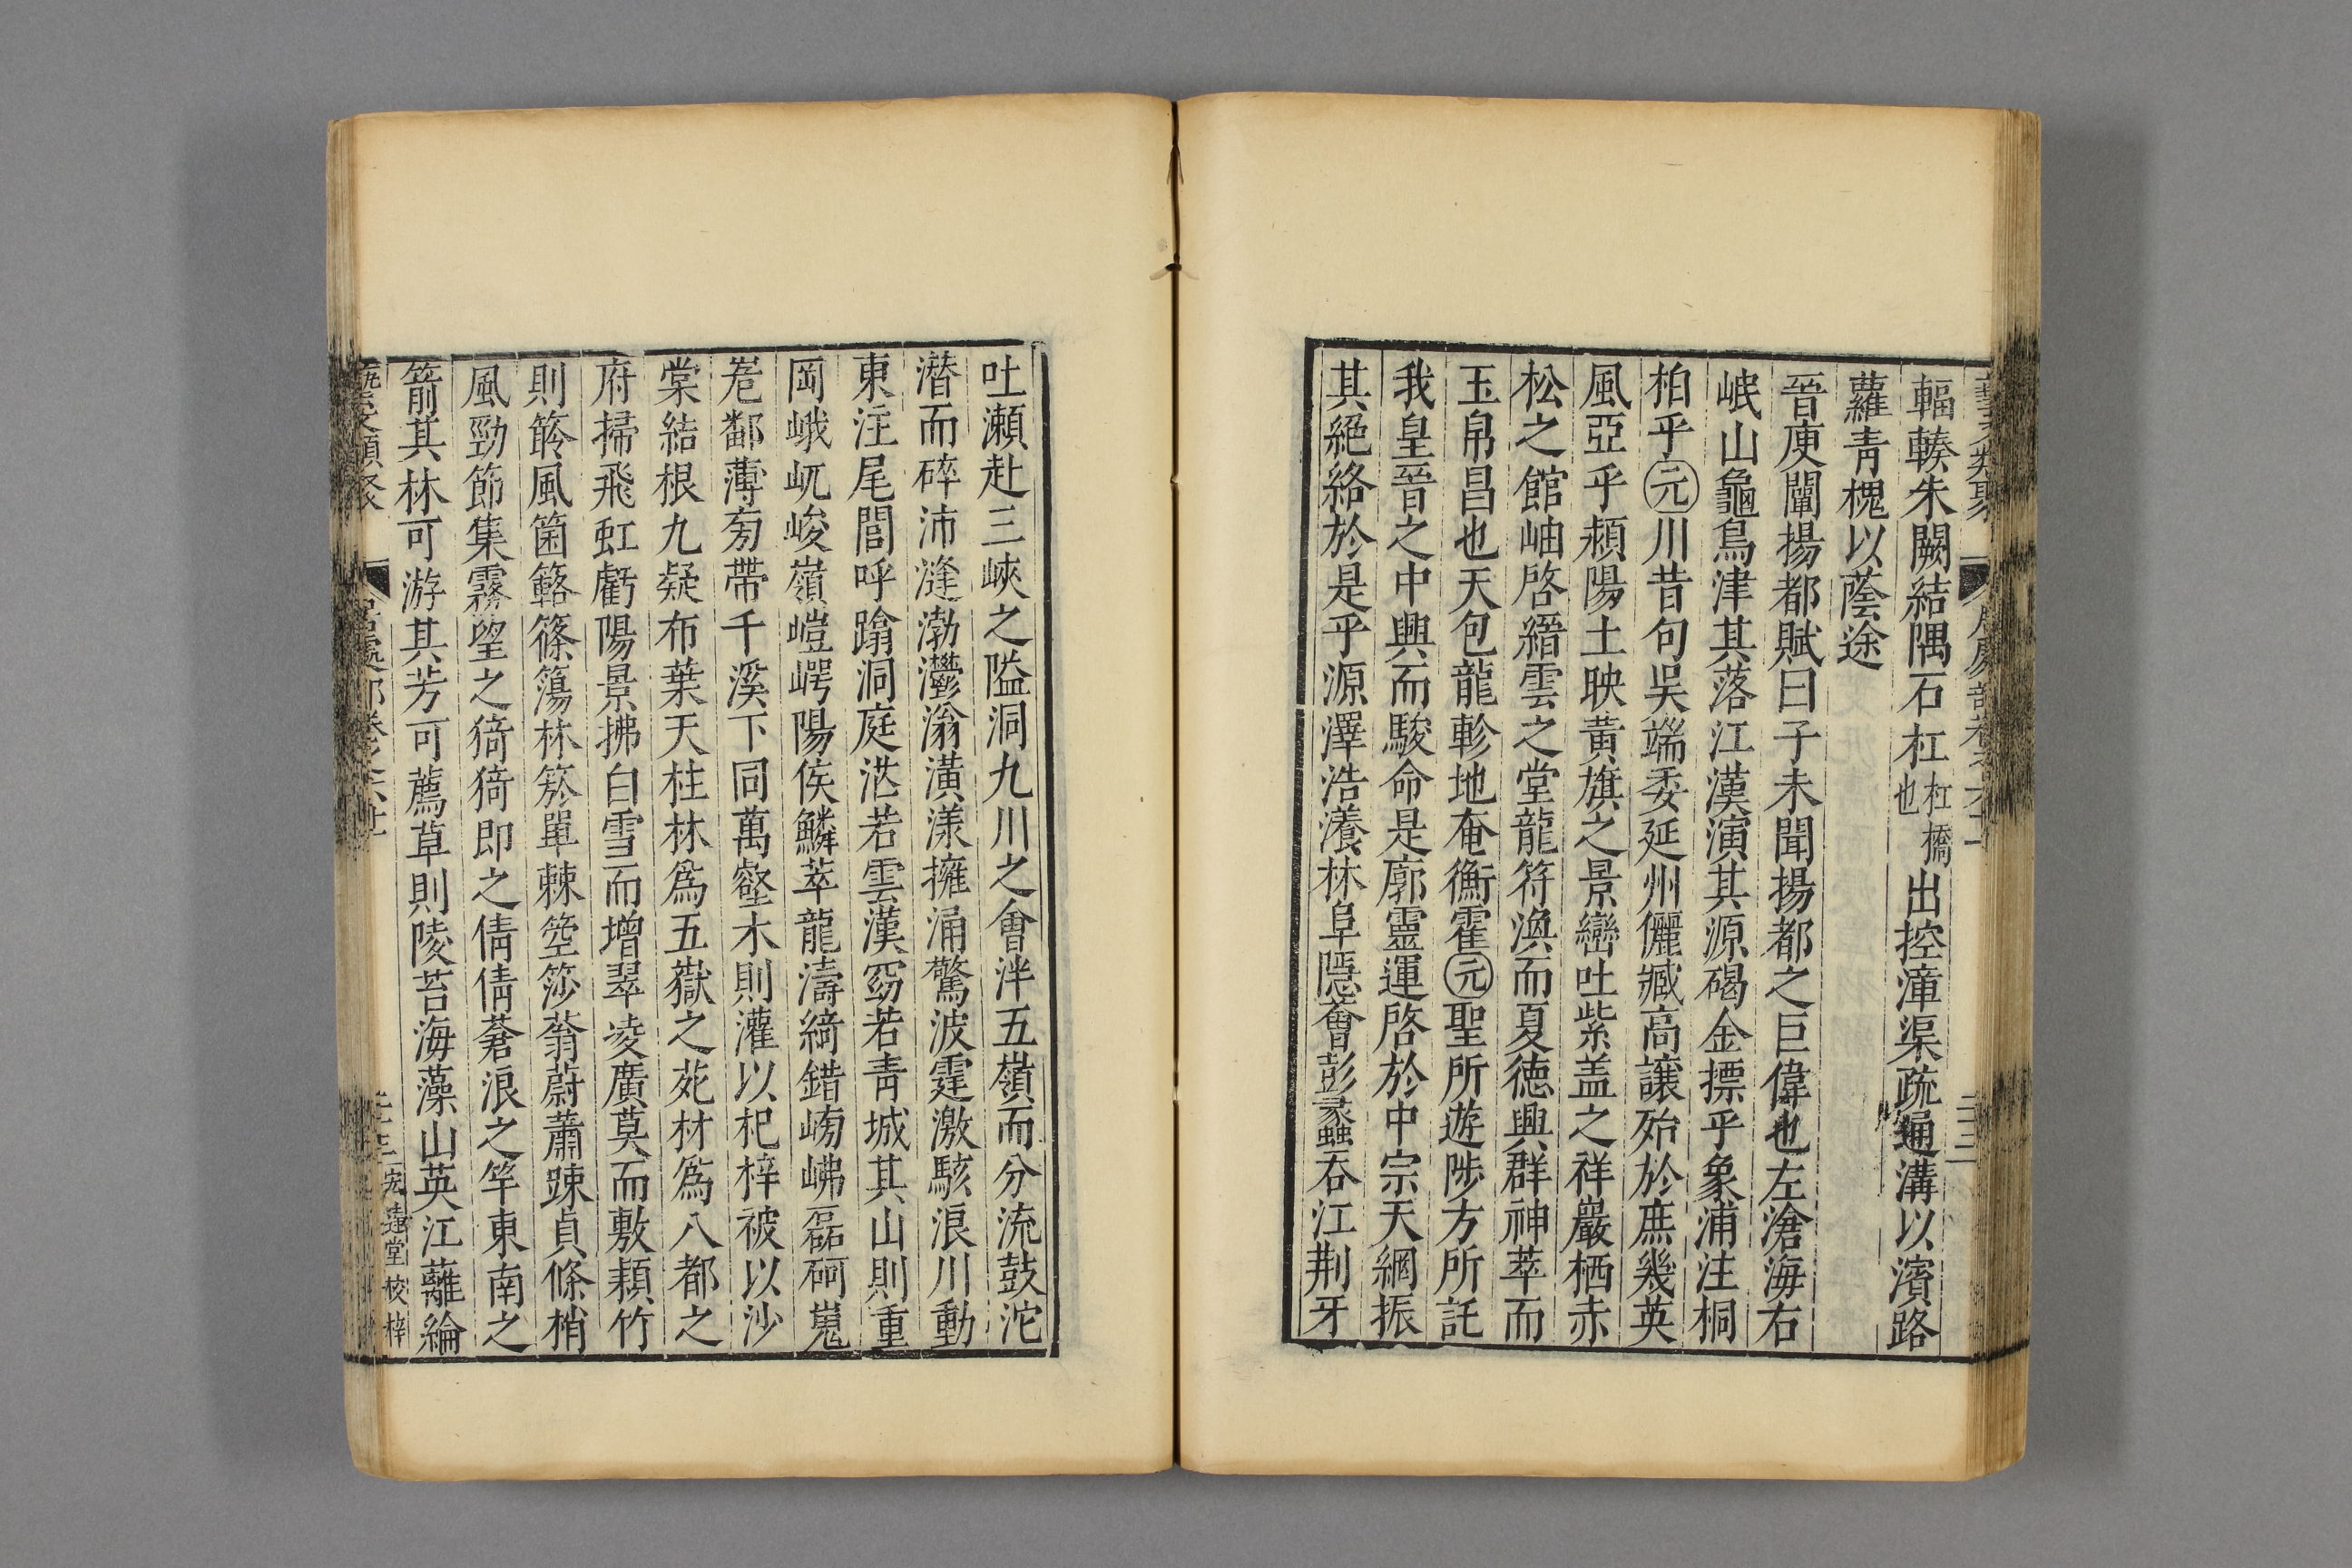 輻輳朱闕結隅石杠杠橋也出控漳渠疏通溝以濱路
蘿青槐以蔭途
晉庾闡揚都賦曰子未聞揚都之巨偉也左滄海右
岷山龜鳥津其落江漢演其源碣金摽乎象浦注桐
柏乎元川昔句吳端委延州儷臧高讓殆於庶幾英
風亞乎潁陽土映黃旗之景巒吐紫盖之祥巖栖赤
松之館岫啓縉雲之堂龍符渙而夏德興群神萃而
玉帛昌也天包龍軫地奄衡霍元聖所遊陟方所託
我皇晉之中興而駿命是廓靈運啓於中宗天網振
其絕絡於是乎源澤浩瀁林阜隱薈彭蠡吞江荆牙
吐瀨赴三峽之隘洞九川之會泮五嶺而分流鼓沱
潜而碎沛漨渤灪滃潢漾擁涌驚波霆激駭浪川動
東注尾閭呼踰洞庭泛若雲漢窈若青城其山則重
岡峨屼峻嶺嵦崿陽侯鱗萃龍濤綺錯崵岪磊砢嵬
峞鄰薄匊帶千溪下同萬壑木則灌以杞梓被以沙
棠結根九疑布葉天柱林爲五嶽之苑材爲八都之
府掃飛虹虧陽景拂白雪而增翠凌廣莫而敷穎竹
則笭風箘簵篠簜林箊單棘箜莎蓊蔚蕭踈貞條梢
風勁節集霧望之猗猗即之倩倩蒼浪之竿東南之
箭其林可游其芳可薦草則陵苕海藻山英江蘺綸
藝文類聚 居處部卷之六廿 二十三 宏遠堂校梓